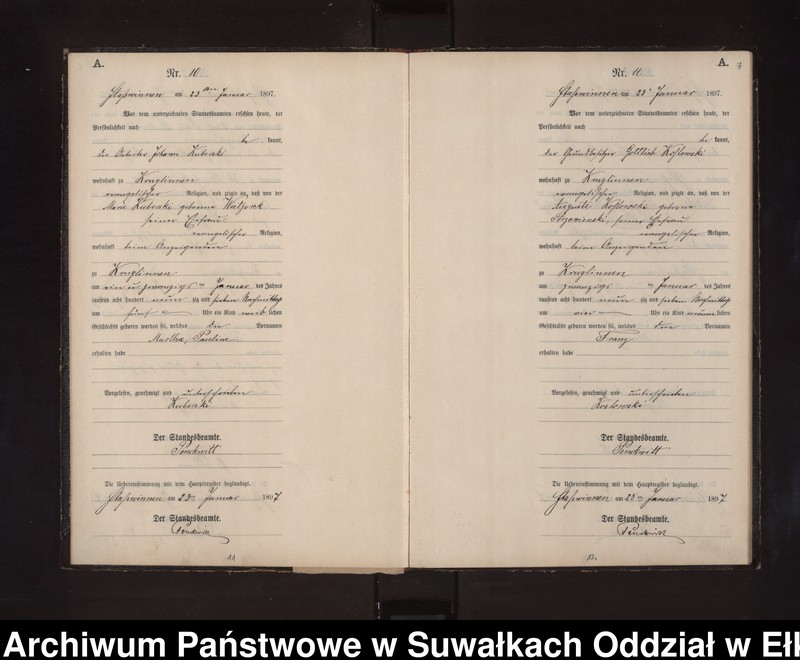 A.
Nr. 10
Staßwinnen am 23ten Januar 1897.
Vor dem unterzeichneten Standesbeamten erschien heute, der
Persönlichkeit nach
be kannt,
der Arbeiter Johann
wohnhaft zu Kruglinnen
evangelischer Religion, und zeigte an, daß von der
Marie geborene
seiner Ehefrau
evangelischer Religion,
wohnhaft beim Anzeigenden
zu Kruglinnen
am ein u. zwanzigsten Januar des Jahres
tausend acht hundert neun zig und sieben Nachmittags
um fünf Uhr ein Kind weib lichen
Geschlechts geboren worden sei, welches die Vornamen
Martha, Pauline
erhalten habe
Vorgelesen, genehmigt und unterschrieben
Der Standesbeamte.
Die Uebereinstimmung mit dem Hauptregister beglaubigt.
Staßwinnen am 23ten Januar 1897
Der Standesbeamte.
11
A.
7
Nr. 11
Staßwinnen am 23t Januar 1897.
Vor dem unterzeichneten Standesbeamten erschien heute, der
Persönlichkeit nach
be kannt,
der Grundbesitzer Gottlieb Koslowski
wohnhaft zu Kruglinnen
evangelischer Religion, und zeigte an, daß von der
Auguste Koslowski geborene
seiner Ehefrau
evangelischer Religion,
wohnhaft beim Anzeigenden
zu Kruglinnen
am zwanzigsten Januar des Jahres
tausend acht hundert neun zig und sieben Nachmittags
um vier Uhr ein Kind männ lichen
Geschlechts geboren worden sei, welches den Vornamen
Franz
erhalten habe
Vorgelesen, genehmigt und unterschrieben
Koslowski
Der Standesbeamte.
Die Uebereinstimmung mit dem Hauptregister beglaubigt.
Staßwinnen am 23ten Januar 1897
Der Standesbeamte.
Archiwum Państwowe w Suwałkach Oddział w Ełk